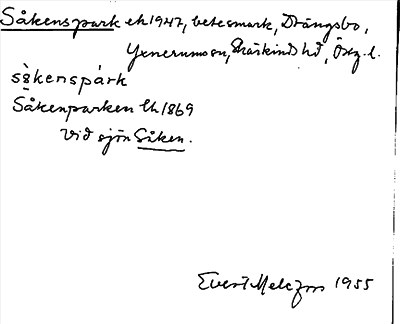 Såkenspark ek 1947, betesmark, Drängsbo,
Yxnerums sn, Skärkinds hd, Östg. l.
såkenspárk
Såkenparken Ek 1869
Vid sjön Såken.
Evert Melefors 1955